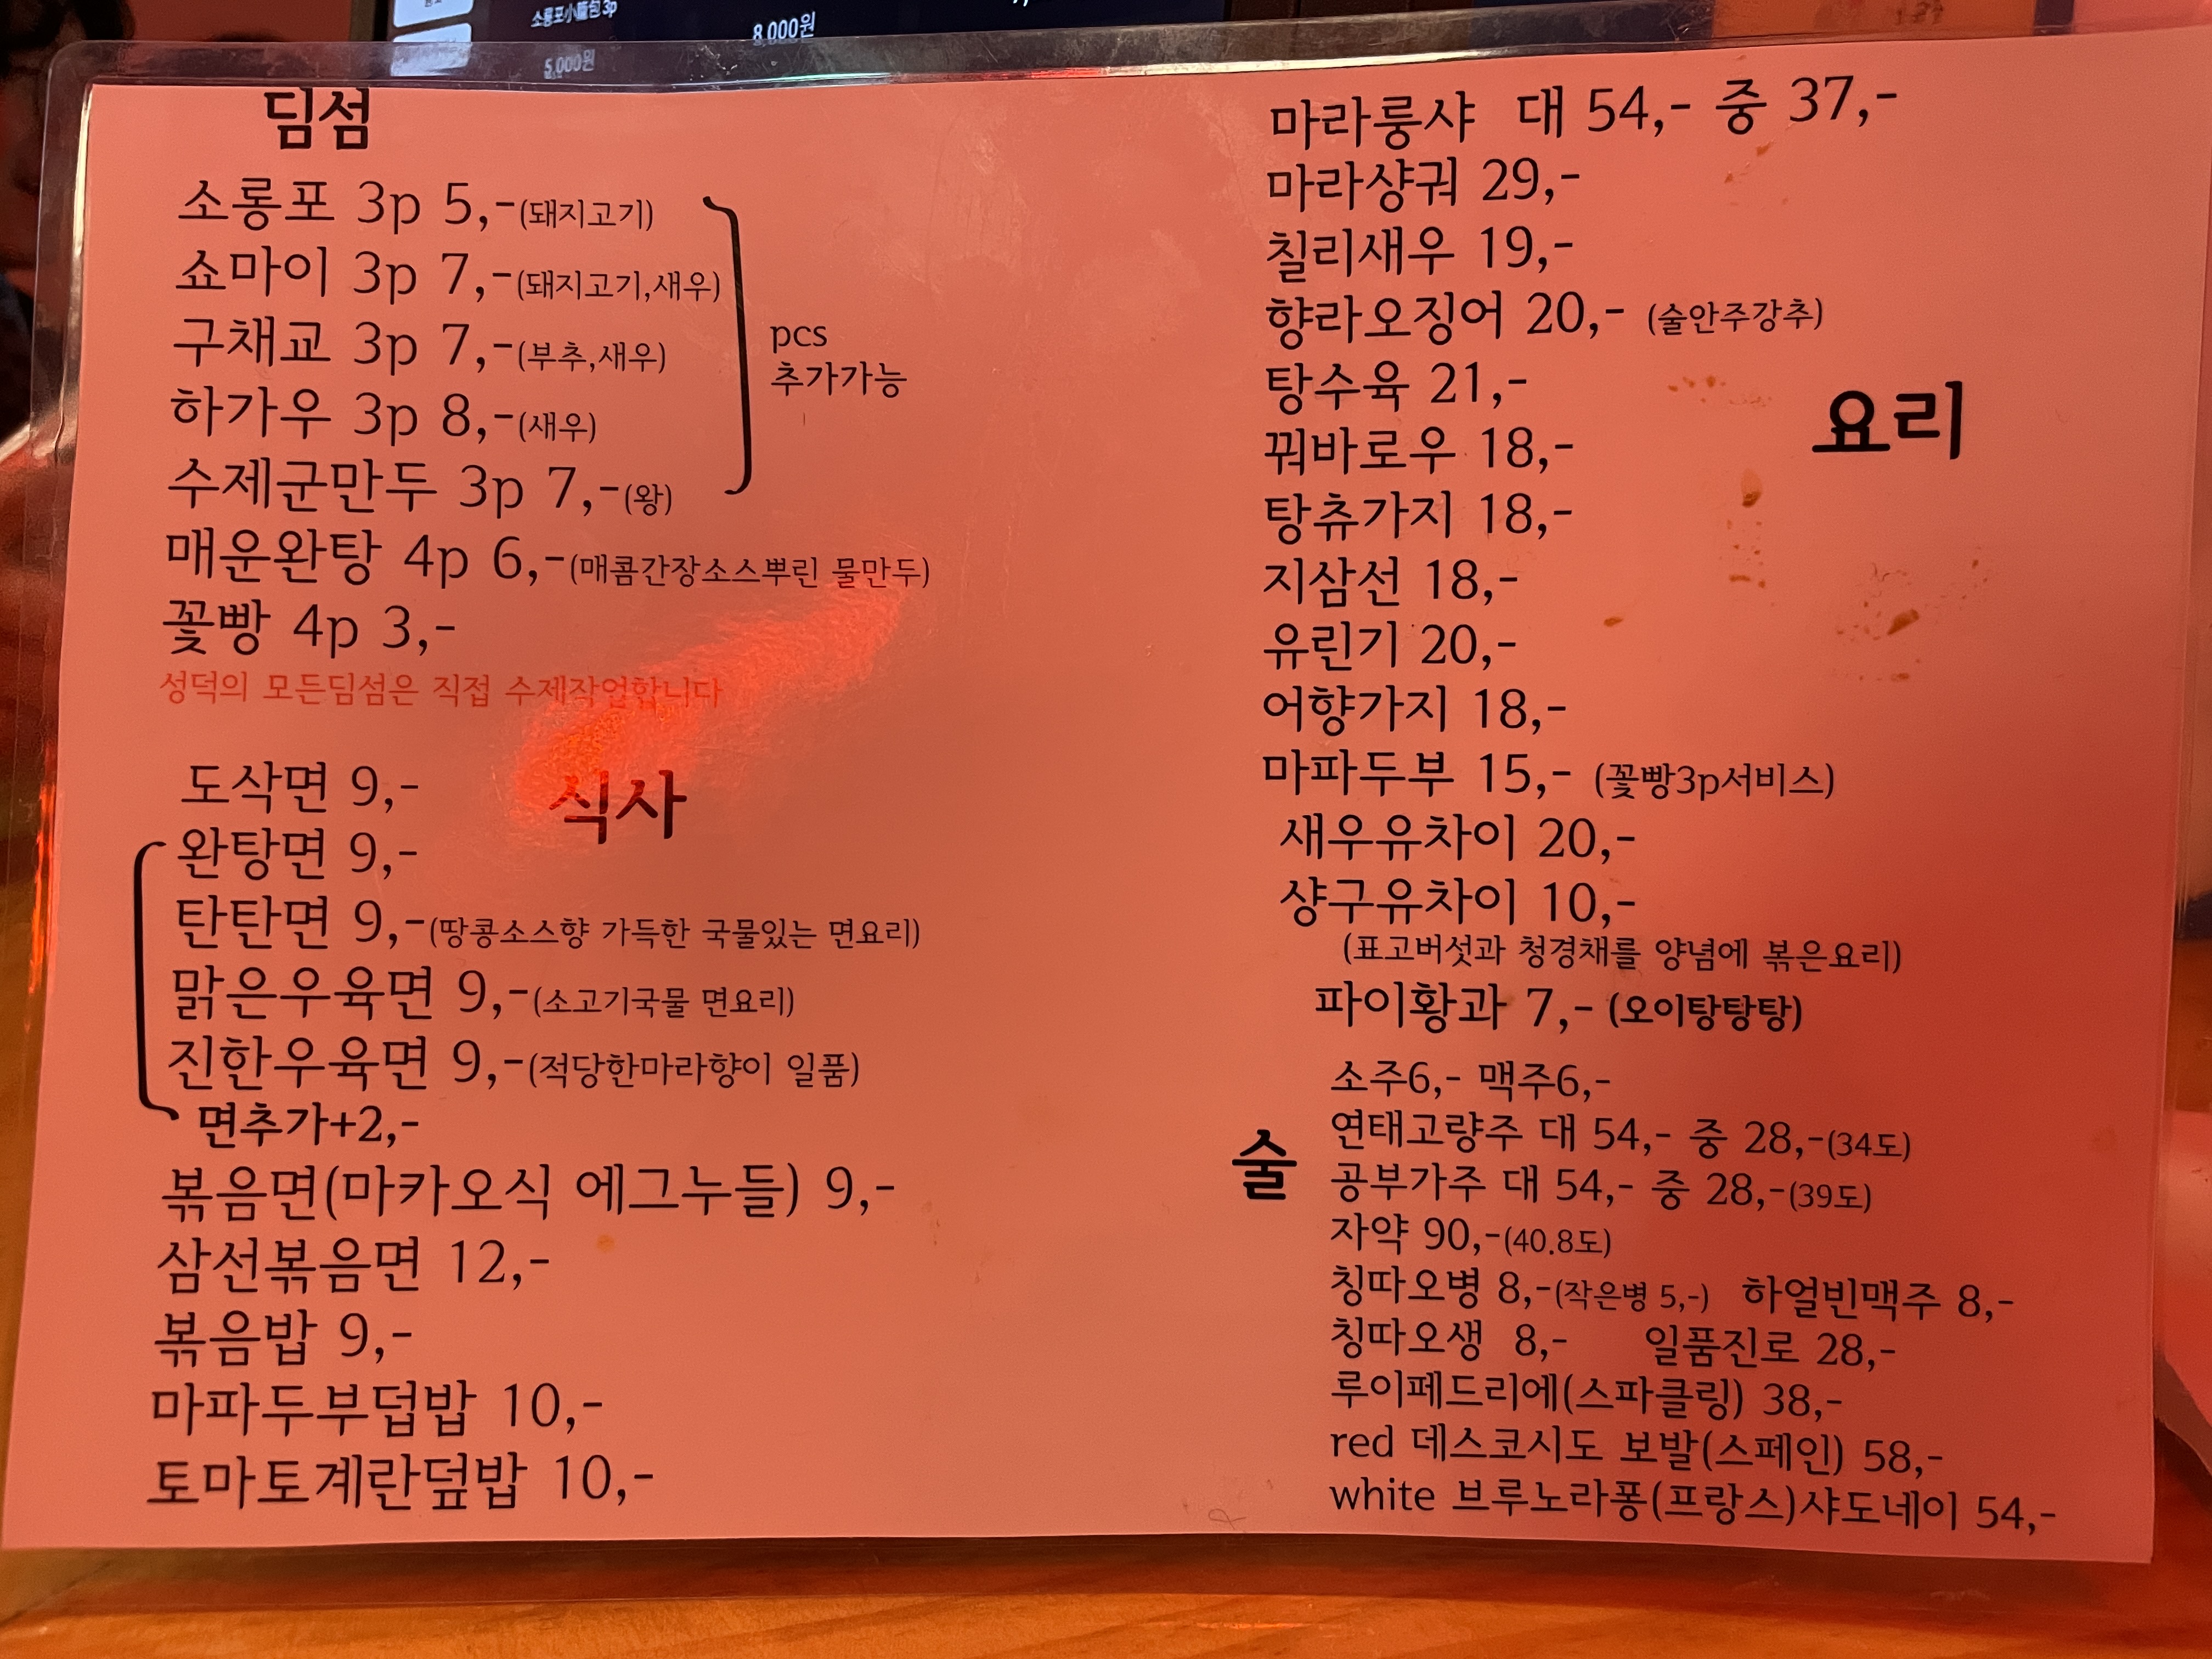 소롱포小籠包3p
8,000원
5,000원
딤섬
소롱포 3p 5,-(돼지고기)
쇼마이 3p 7,-(돼지고기,새우)
구채교 3p 7,-(부추,새우)
하가우 3p 8,-(새우)
수제군만두 3p 7,-(왕)
pcs
추가가능
매운완탕 4p 6,-(매콤간장소스뿌린 물만두)
꽃빵 4p 3,-
성덕의 모든딤섬은 직접 수제작업합니다
식사
도삭면 9,-
완탕면 9,-
탄탄면 9,-(땅콩소스향 가득한 국물있는 면요리)
맑은우육면 9,-(소고기국물 면요리)
진한우육면 9,-(적당한마라향이 일품)
면추가+2,-
볶음면(마카오식 에그누들) 9,-
삼선볶음면 12,-
볶음밥 9,-
마파두부덥밥 10,-
토마토계란덮밥 10,-
요리
마라룽샤 대 54,- 중 37,-
마라샹궈 29,-
칠리새우 19,-
향라오징어 20,- (술안주강추)
탕수육 21,-
꿔바로우 18,-
탕츄가지 18,-
지삼선 18,-
유린기 20,-
어향가지 18,-
마파두부 15,- (꽃빵3p서비스)
새우유차이 20,-
샹구유차이 10,-
(표고버섯과 청경채를 양념에 볶은요리)
파이황과 7,- (오이탕탕탕)
술
소주6,- 맥주6,-
연태고량주 대 54,- 중 28,-(34도)
공부가주 대 54,- 중 28,-(39도)
자약 90,-(40.8도)
칭따오병 8,-(작은병 5,-) 하얼빈맥주 8,-
칭따오생 8,- 일품진로 28,-
루이페드리에(스파클링) 38,-
red 데스코시도 보발(스페인) 58,-
white 브루노라퐁(프랑스)샤도네이 54,-